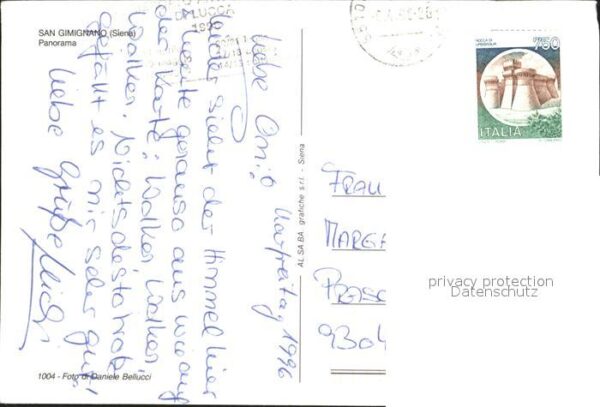 SAN GIMIGNANO (Siena)
Panorama
DI LUCCA
ROCCA DI URBISAGLIA
750
ITALIA
Liebe Omi! Karfreitag 1996
Leider sieht der Himmel hier
heute genauso aus wie auf
der Karte: Wolken, Wolken,
Wolken. Nichtsdestotrotz
gefällt es mir sehr gut!
Liebe Grüße
AL.SA.BA. grafiche s.r.l. - Siena
FRAU
MARGA
9304
privacy protection
Datenschutz
1004 - Foto di Daniele Bellucci